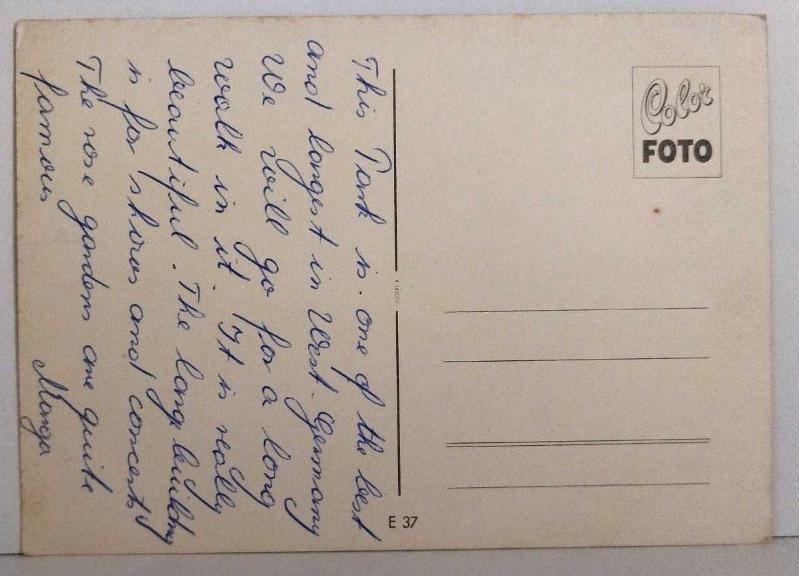 This Park is one of the best
and longest in West. Germany
We will go for a long
walk in it. It is really
beautiful. The long building
is for shows and concerts
The rose gardens are quite
famous
Color
FOTO
E 37